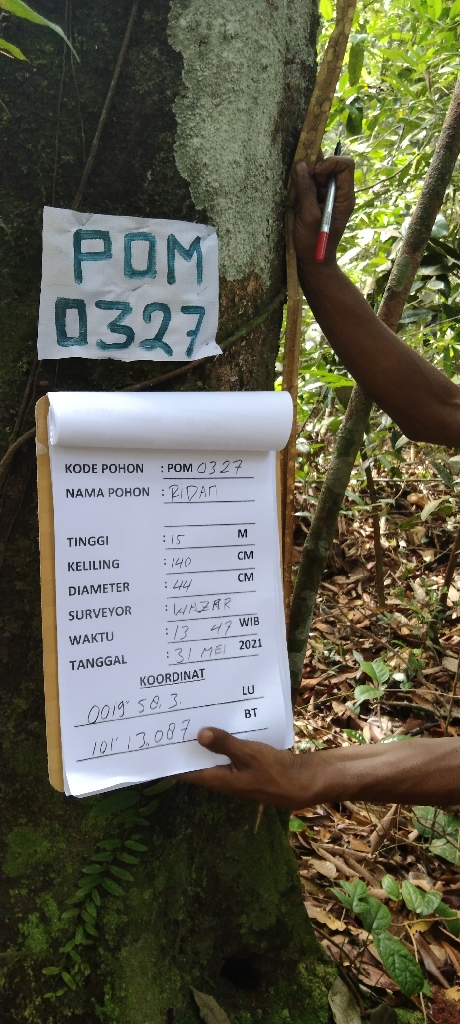 POM
0327
KODE POHON : POM 0327
NAMA POHON : RIDAN
TINGGI : 15 M
KELILING : 140 CM
DIAMETER : 44 CM
SURVEYOR : WAZAR
WAKTU : 13 47 WIB
TANGGAL : 31 MEI 2021
KOORDINAT
0019" 58.3. LU
101' 13.087 BT